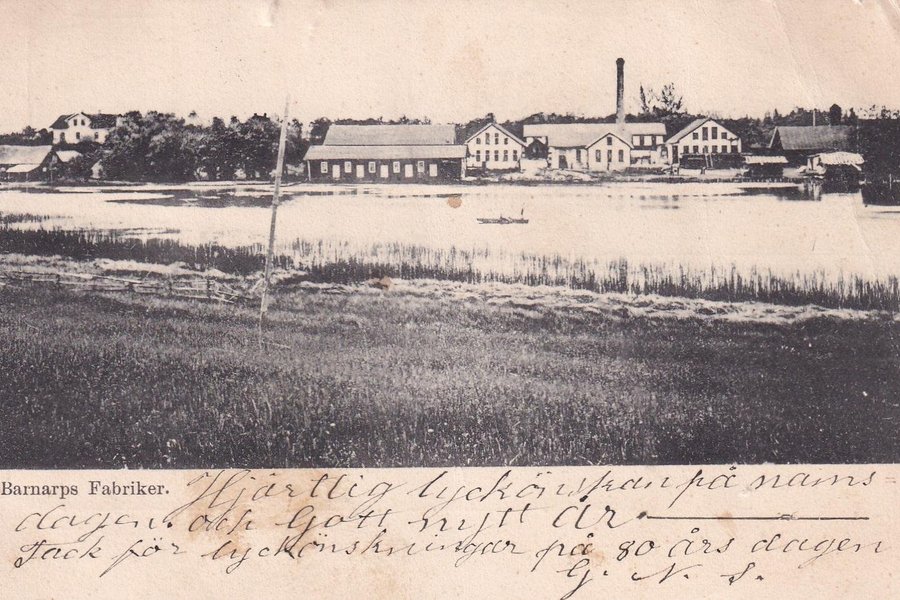 Barnarps Fabriker. Hjärtlig lyckönskan på nams=
dagen. och Gott nytt år
Tack för lyckönskningar på 80 års dagen
G. N. S.